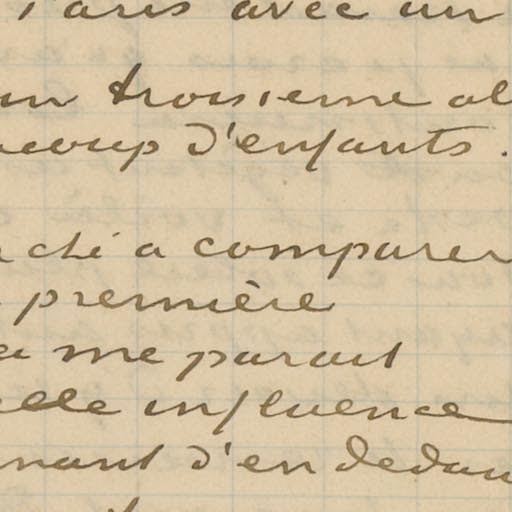 Paris avec un
un troisieme al
coup d'enfants.
ché a comparer
première
a me parait
elle influence
nant d'en dedan